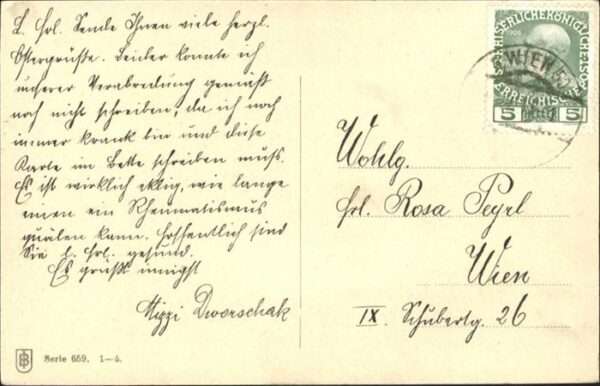 L. Frl. Sende Ihnen viele herzl.
Ostergrüße. Leider konnte ich
unserer Verabredung gemäß
noch nicht schreiben, da ich noch
immer krank bin und diese
Karte im Bette schreiben muß.
Es ist wirklich eklig, wie lange
einen ein Rheumatismus
quälen kann. Hoffentlich sind
Sie l. Frl. gesund.
Es grüßt innigst
Mizzi Dworschak
Serie 659. 1—6.
K.K. ÖSTERREICHISCHE POST
5 5
WIEN
Wohlg.
Frl. Rosa Peyrl
Wien
IX. Schubertg. 26